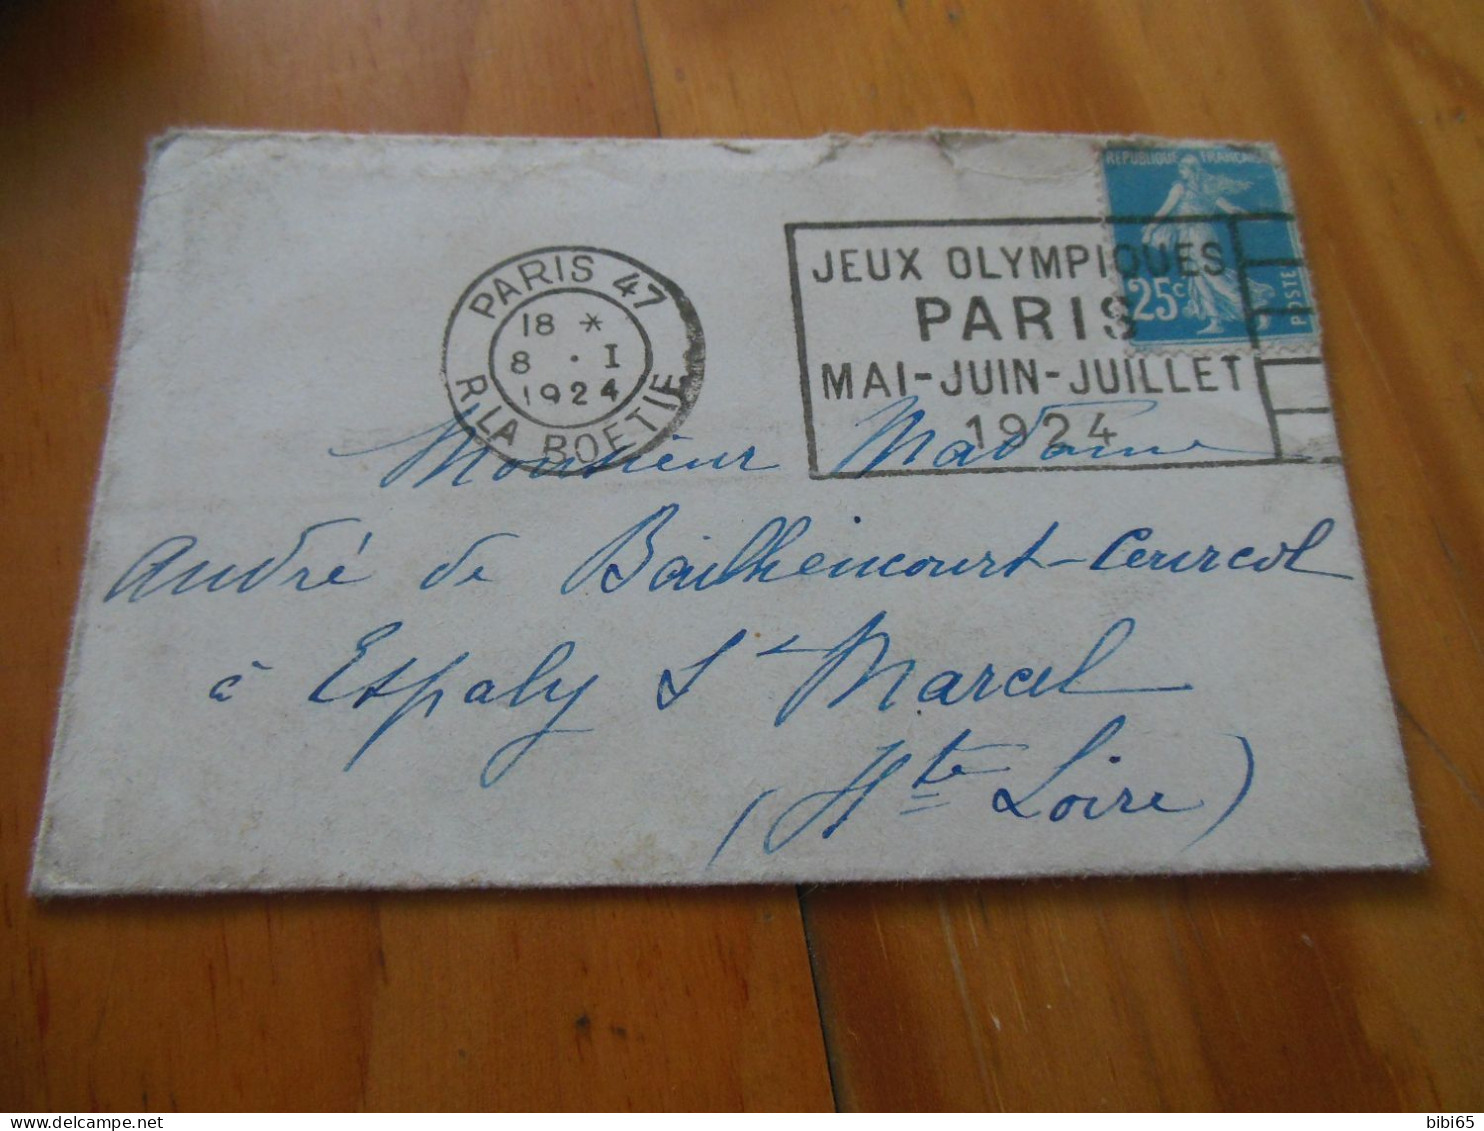 REPUBLIQUE FRANCAISE
25c
POSTES
JEUX OLYMPIQUES
PARIS
MAI-JUIN-JUILLET
1924
PARIS 47
18 *
8 . I
1924
R. LA BOETIE
Monsieur Madame
André de Bailhencourt-Courcol
à Espaly St Marcel
(Hte Loire)
bibi65